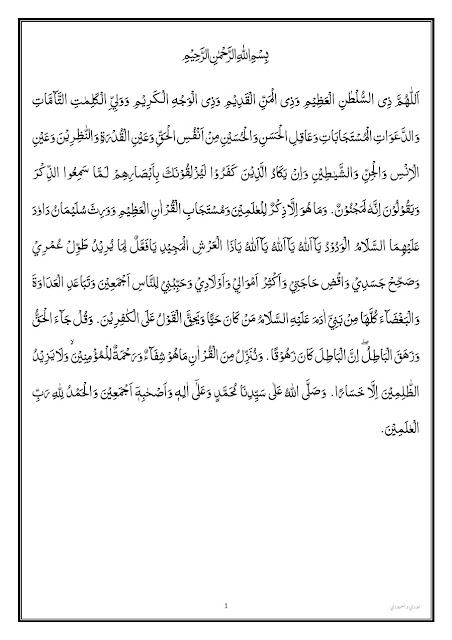 بِسْمِ اللهِ الرَّحْمٰنِ الرَّحِيْمِ
اَللّٰهُمَّ ذِى السُّلْطٰنِ الْعَظِيْمِ وَذِى الْمَنِّ الْقَدِيْمِ وَذِى الْوَجْهِ الْكَرِيْمِ وَوَلِيِّ الْكَلِمٰتِ التَّآمَّاتِ
وَالدَّعَوَاتِ الْمُسْتَجَابَاتِ وَعَاقِلِ الْحَسَنِ وَالْحُسَيْنِ مِنْ اَنْفُسِ الْحَقِّ وَعَيْنِ الْقُدْرَةِ وَالنّٰظِرِيْنَ وَعَيْنِ
الْاِنْسِ وَالْجِنِّ وَالشَّيٰطِيْنِ وَاِنْ يَكَادُ الَّذِيْنَ كَفَرُوْا لَيُزْلِقُوْنَكَ بِاَبْصَارِهِمْ لَمَّا سَمِعُوا الذِّكْرَ
وَيَقُوْلُوْنَ اِنَّهٗ لَمَجْنُوْنٌ. وَمَا هُوَ اِلَّا ذِكْرٌ لِلْعٰلَمِيْنَ وَمُسْتَجَابِ الْقُرْاٰنِ الْعَظِيْمِ وَوَرِثَ سُلَيْمَانُ دَاوٗدَ
عَلَيْهِمَا السَّلَامُ الْوَدُوْدُ يَآاَللهُ يَآاَللهُ يَآاَللهُ يَاذَا الْعَرْشِ الْمَجِيْدِ يَافَعَّالٌ لِمَا يُرِيْدُ طَوِّلْ عُمْرِيْ
وَصَحِّحْ جَسَدِيْ وَاقْضِ حَاجَتِيْ وَاَكْثِرْ اَمْوَالِيْ وَاَوْلَادِيْ وَحَبِّبْنِيْ لِلنَّاسِ اَجْمَعِيْنَ وَتَبَاعَدِ الْعَدَاوَةَ
وَالْبَغْضَآءَ كُلَّهَا مِنْ بَنِيْٓ اٰدَمَ عَلَيْهِ السَّلَامُ مَنْ كَانَ حَيًّا وَيَحِقَّ الْقَوْلُ عَلَى الْكٰفِرِيْنَ. وَقُلْ جَآءَ الْحَقُّ
وَزَهَقَ الْبَاطِلُ ۖ اِنَّ الْبَاطِلَ كَانَ زَهُوْقًا. وَنُنَزِّلُ مِنَ الْقُرْاٰنِ مَا هُوَ شِفَآءٌ وَّرَحْمَةٌ لِّلْمُؤْمِنِيْنَ ۙ وَلَا يَزِيْدُ
الظّٰلِمِيْنَ اِلَّا خَسَارًا. وَصَلَّى اللهُ عَلٰى سَيِّدِنَا مُحَمَّدٍ وَعَلٰٓى اٰلِهٖ وَاَصْحٰبِهٖ اَجْمَعِيْنَ وَالْحَمْدُ لِلّٰهِ رَبِّ
الْعٰلَمِيْنَ.
1